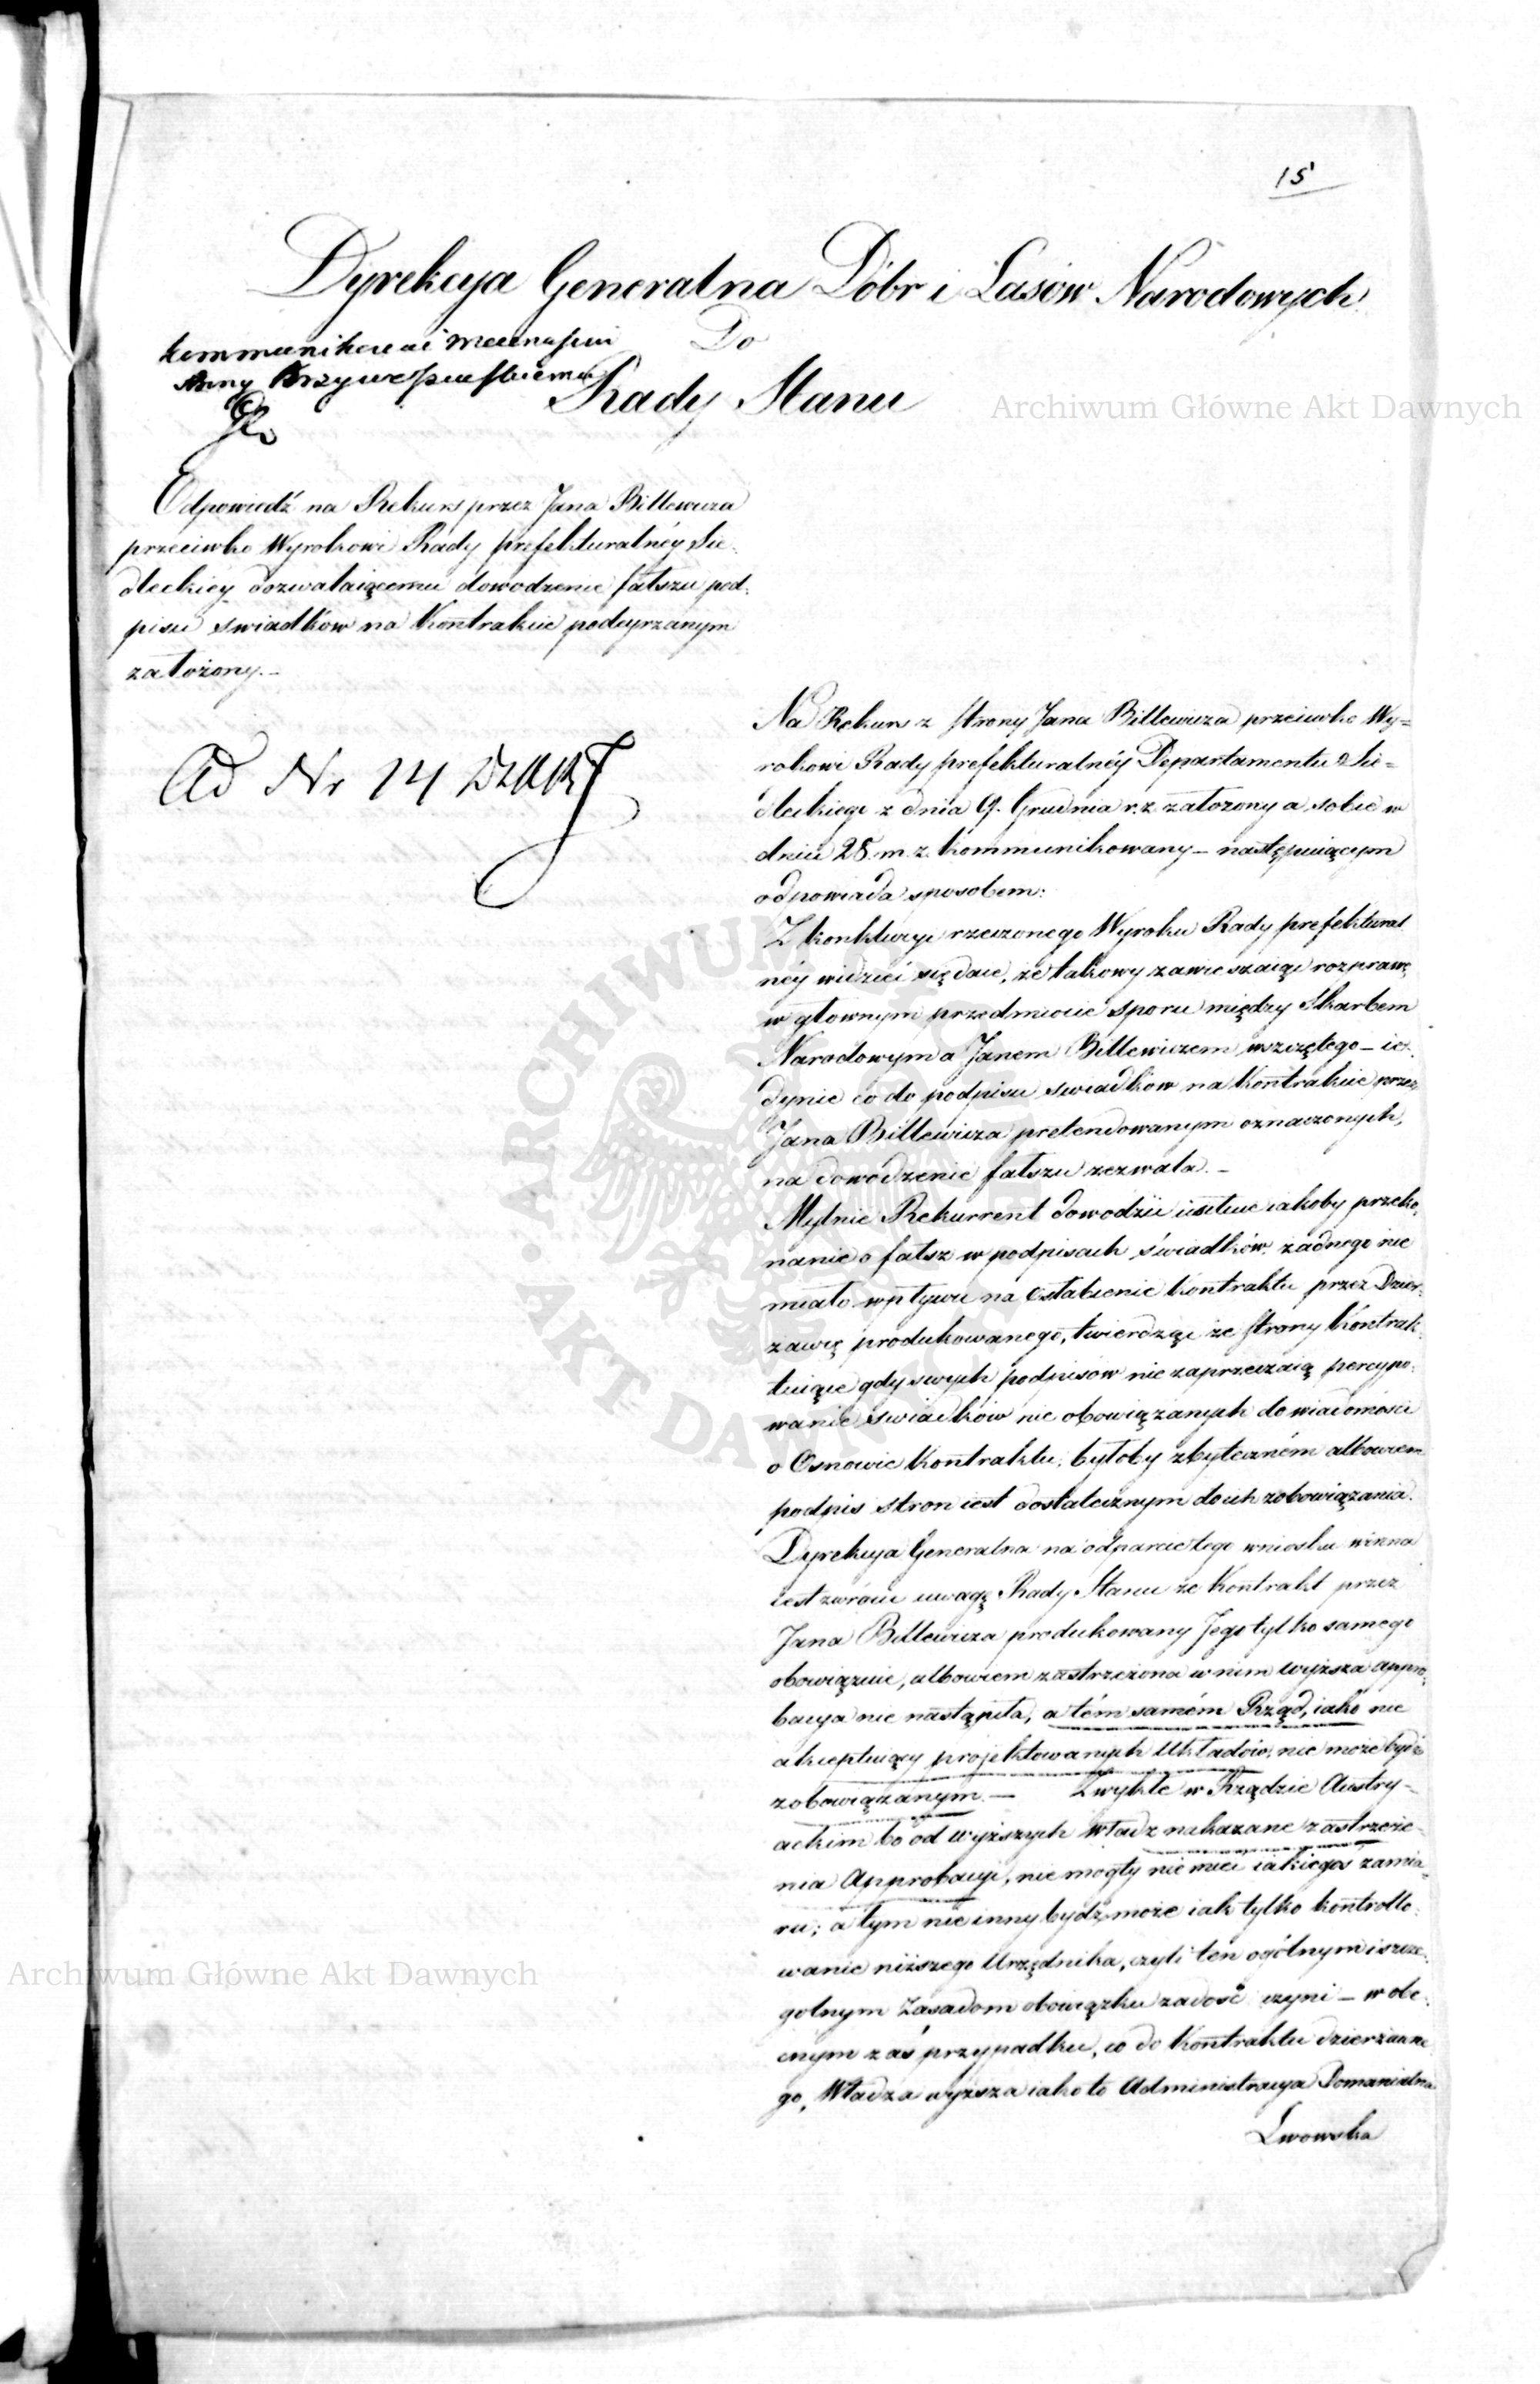 15
Dyrekcya Generalna Dóbr i Lasów Narodowych
Do
Rady Stanu
Archiwum Główne Akt Dawnych
Odpowiedź na Rekurs przez Jana Billewicza
przeciwko Wyrokowi Rady prefekturalnéy Sie-
dleckiéy dozwalaiącemu dowodzenie fałszu pod-
pisu swiadków na Kontrakcie podeyrzanym
założony.-
Ad Nr 14
Na Rekurs z strony Jana Billewicza przeciwko Wy=
rokowi Rady prefekturalnéy Departamentu Sie=
dleckiego z dnia 9. Grudnia r. z. założony a sobie w
dniu 28. m. z. kommunikowany - następuiącym
odpowiada sposobem:
Z konkluzyi rzeczonego Wyroku Rady prefektural
néy widzieć się daie, że takowy zawieszaiąc rozprawę
w głownym przedmiocie sporu między Skarbem
Narodowym a Janem Billewiczem wszczętego - ie-
dynie co do podpisu swiadków na Kontrakcie przez
Jana Billewicza pretendowanym oznaczonych,
na dowodzenie fałszu zezwala. -
Mylnie Rekurrent dowodzić usiłuie iakoby przeko-
nanie o fałsz w podpisach świadków żadnego nie
miało wpływu na Osłabienie Kontraktu przez Dzier-
zawcę produkowanego, twierdząc że strony Kontrak-
tuiące gdy swych podpisów nie zaprzeczaią percypo-
wanie swiadków nie obowiązanych do wiadomości
o Osnowie Kontraktu, byłoby zbyteczném albowiem
podpis stron iest dostatecznym do ich zobowiązania.
Dyrekcya Generalna na odparcie tego wniosku winna
iest zwrócić uwagę Rady Stanu że Kontrakt przez
Jana Billewicza produkowany Jego tylko samego
obowiązuie, albowiem zastrzeżona w nim wyższa appro-
bacya nie nastąpiła, a tém samém Rząd, iako nie
akceptuiący projektowanych Układów, nie może bydź
zobowiązanym. - Zwykłe w Rządzie Austry-
ackim bo od wyższych Władz nakazane zastrzeże-
nia Approbacyi, nie mogły nie mieć iakiegoś zamia-
ru; a tym nie inny bydź może iak tylko kontrollo-
wanie niższego Urzędnika, czyli ten ogólnym i szcze-
gólnym Zasadom obowiązku zadość czyni - w obe-
cnym zaś przypadku, co do Kontraktu dzierżawne
go, Władza wyższa iako to Administracya Domanialna
Lwowska
ARCHIWUM GŁÓWNE AKT DAWNYCH
Archiwum Główne Akt Dawnych